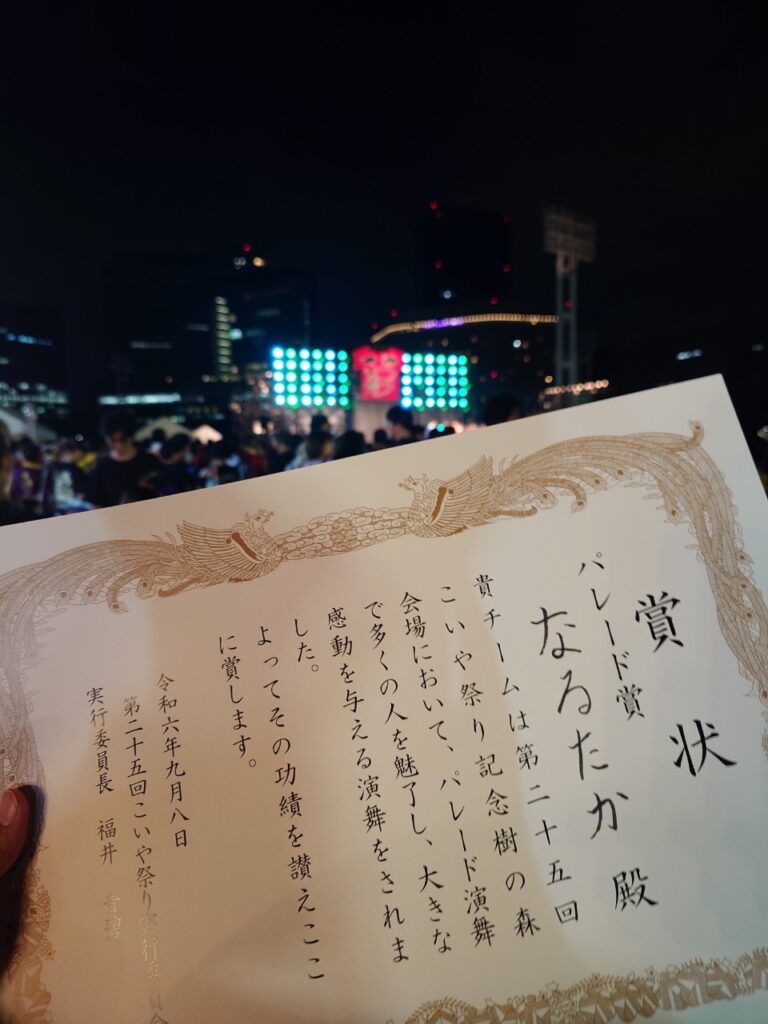 賞状
パレード賞
なるたか 殿
貴チームは第二十五回
こいや祭り記念樹の森
会場において、パレード演舞
で多くの人を魅了し、大きな
感動を与える演舞をされま
した。
よってその功績を讃えここ
に賞します。
令和六年九月八日
第二十五回こいや祭り実行委員会
実行委員長 福井